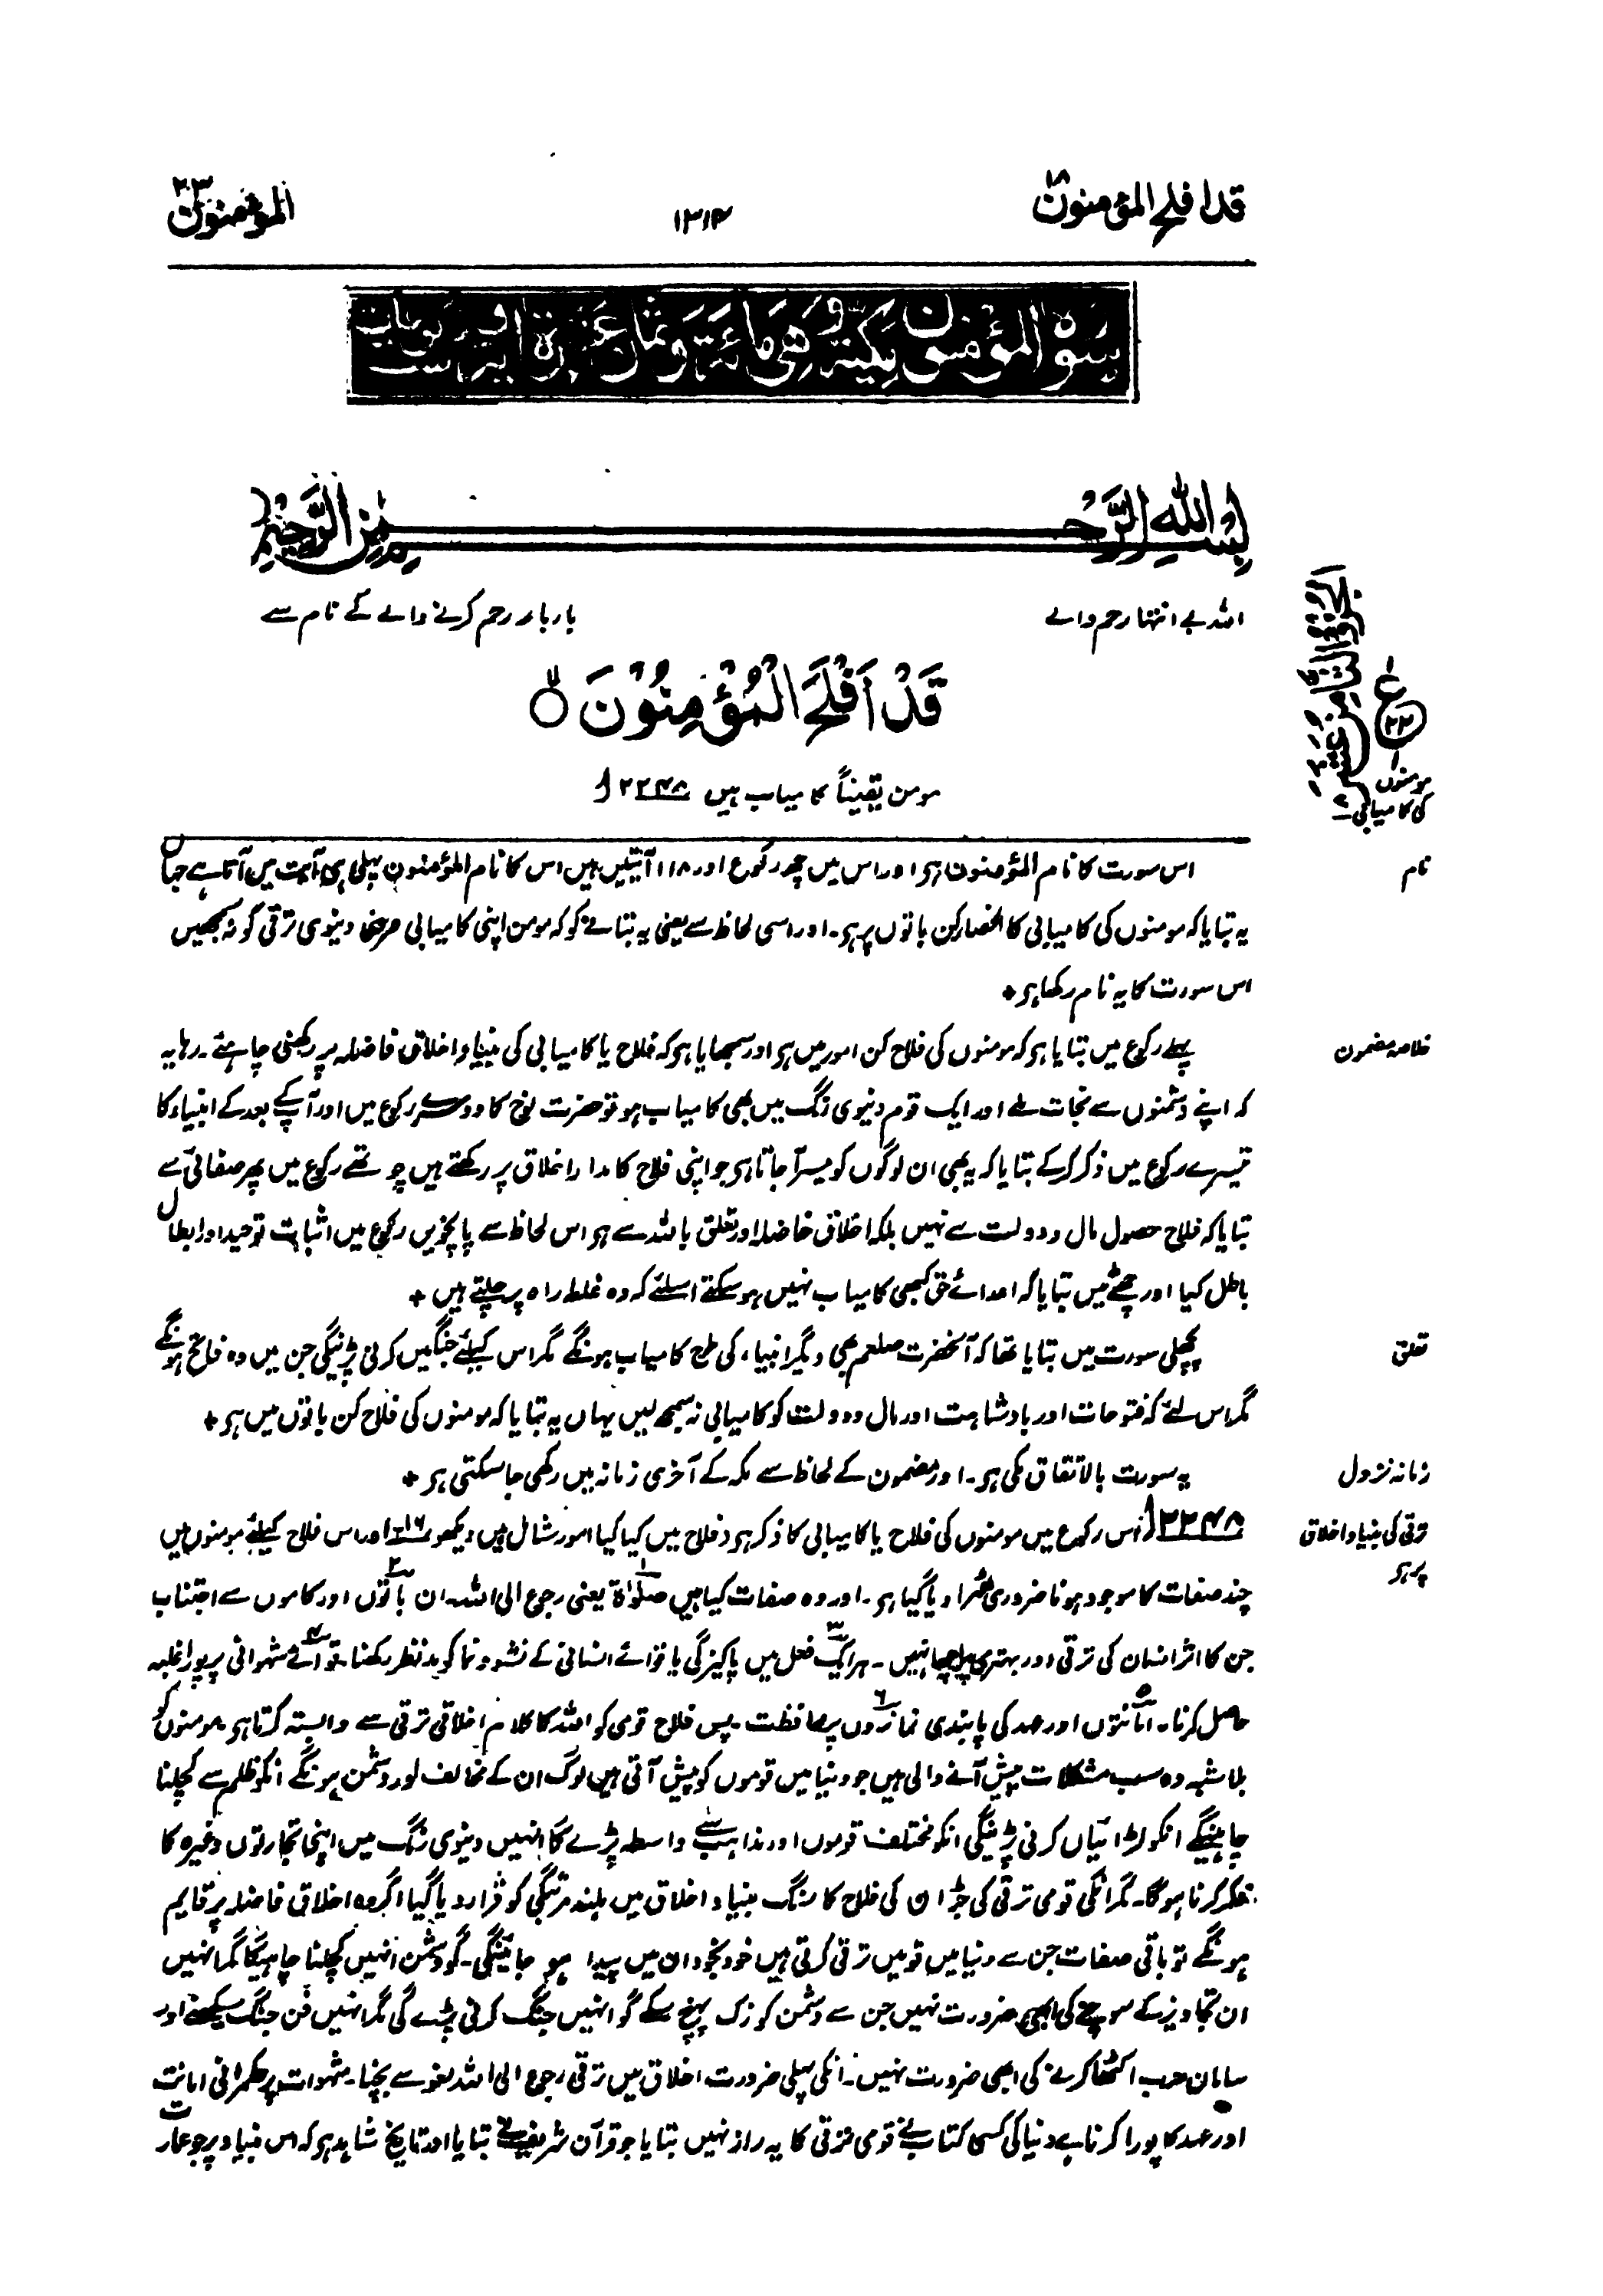 قد افلح المؤمنون ۱۸
۱۳۱۴
المؤمنون ۲۳
سورة المؤمنون مكية وهي مائة وثمان عشرة اية وست ركوعات
بِسْمِ اللّٰهِ الرَّحْمٰنِ الرَّحِيْمِ
اللہ بے انتہا رحم والے بار بار رحم کرنے والے کے نام سے
قَدْ اَفْلَحَ الْمُؤْمِنُوْنَ ۙ
مومن یقیناً کامیاب ہیں ۲۲۴۸
ع
۱
مومنوں
کی کامیابی
نام
اس سورت کا نام المؤمنون ہر اور اس میں چھ رکوع اور ۱۱۸ آیتیں ہیں اس کا نام المؤمنون پہلی ہی آیت میں آتا ہے جہاں
یہ بتایا کہ مومنوں کی کامیابی کا انحصار کن باتوں پر ہر۔ اور اسی لحاظ سے یعنی یہ بتانے کو کہ مومن اپنی کامیابی صرف دنیوی ترقی کو نہ سمجھیں
اس سورت کا یہ نام رکھا ہر +
خلاصہ مضمون
پہلے رکوع میں بتایا ہر کہ مومنوں کی فلاح کن امور میں ہر اور سمجھایا ہر کہ فلاح یا کامیابی کی بنیاد اخلاق فاضلہ پر رکھنی چاہئے۔ رہا یہ
کہ اپنے دشمنوں سے نجات ملے اور ایک قوم دنیوی رنگ میں بھی کامیاب ہو تو حضرت نوح کا دوسرے رکوع میں اور آپ کے بعد کے انبیاء کا
تیسرے رکوع میں ذکر کر کے بتایا کہ یہ بھی ان لوگوں کو میسر آ جاتا ہر جو اپنی فلاح کا مدار اخلاق پر رکھتے ہیں چوتھے رکوع میں پھر صفائی سے
بتایا کہ فلاح حصول مال و دولت سے نہیں بلکہ اخلاق فاضلہ اور تعلق باللہ سے ہر اس لحاظ سے پانچویں رکوع میں اثبات توحید اور ابطال
باطل کیا اور چھٹے میں بتایا کہ اعدائے حق کبھی کامیاب نہیں ہو سکتے اسلئے کہ وہ غلط راہ پر چلتے ہیں +
تعلق
پچھلی سورت میں بتایا تھا کہ آنحضرت صلعم بھی دیگر انبیاء کی طرح کامیاب ہونگے مگر اس کیلئے جنگیں کرنی پڑینگی جن میں وہ فاتح ہونگے
مگر اس لئے کہ فتوحات اور بادشاہت اور مال و دولت کو کامیابی نہ سمجھ لیں یہاں یہ بتایا کہ مومنوں کی فلاح کن باتوں میں ہر +
زمانہ نزول
یہ سورت بالاتفاق مکی ہر۔ اور مضمون کے لحاظ سے مکہ کے آخری زمانہ میں رکھی جا سکتی ہر +
ترقی کی بنیاد اخلاق
پر ہر
۲۲۴۸ اس رکوع میں مومنوں کی فلاح یا کامیابی کا ذکر ہر (فلاح میں کیا کیا امور شامل ہیں دیکھو ۱۶) اور اس فلاح کیلئے مومنوں میں
چند صفات کا موجود ہونا ضروری ٹھہرا دیا گیا ہر۔ اور وہ صفات کیا ہیں ۱ صلوٰۃ یعنی رجوع الی اللہ۔ ۲ ان باتوں اور کاموں سے اجتناب
جن کا اثر انسان کی ترقی اور بہتری پر اچھا نہیں۔ ۳ ہر ایک فعل میں پاکیزگی یا قوائے انسانی کے نشوونما کو مدنظر رکھنا۔ ۴ قوائے شہوانی پر پورا غلبہ
حاصل کرنا۔ ۵ امانتوں اور عہد کی پابندی ۶ نمازوں پر محافظت۔ پس فلاح قومی کو اللہ کا کلام اخلاقی ترقی سے وابستہ کرتا ہر۔ مومنوں کو
بلاشبہ وہ سب مشکلات پیش آنے والی ہیں جو دنیا میں قوموں کو پیش آتی ہیں لوگ ان کے مخالف اور دشمن ہونگے انکو ظلم سے کچلنا
چاہینگے انکو لڑائیاں کرنی پڑینگی انکو مختلف قوموں اور مذاہب سے واسطہ پڑے گا انہیں دنیوی رنگ میں اپنی تجارتوں وغیرہ کا
فکر کرنا ہوگا۔ مگر انکی قومی ترقی کی جڑ ان کی فلاح کا سنگ بنیاد اخلاق میں بلند مرتبگی کو قرار دیا گیا اگر وہ اخلاق فاضلہ پر قایم
ہونگے تو باقی صفات جن سے دنیا میں قومیں ترقی کرتی ہیں خود بخود ان میں پیدا ہو جائینگی۔ گو دشمن انہیں کچلنا چاہیگا مگر انہیں
ان تجاویز کے سوچنے کی ابھی ضرورت نہیں جن سے دشمن کو زک پہنچ سکے گو انہیں جنگ کرنی پڑے گی مگر انہیں فن جنگ سیکھنے اور
سامان حرب اکٹھا کرنے کی ابھی ضرورت نہیں۔ انکی پہلی ضرورت اخلاق میں ترقی رجوع الی اللہ لغو سے بچنا۔ شہوات پر حکمرانی امانت
اور عہد کا پورا کرنا ہے دنیا کی کسی کتاب نے قومی ترقی کا یہ راز نہیں بتایا جو قرآن شریف نے بتایا اور تاریخ شاہد ہر کہ اس بنیاد پر جو عمارت